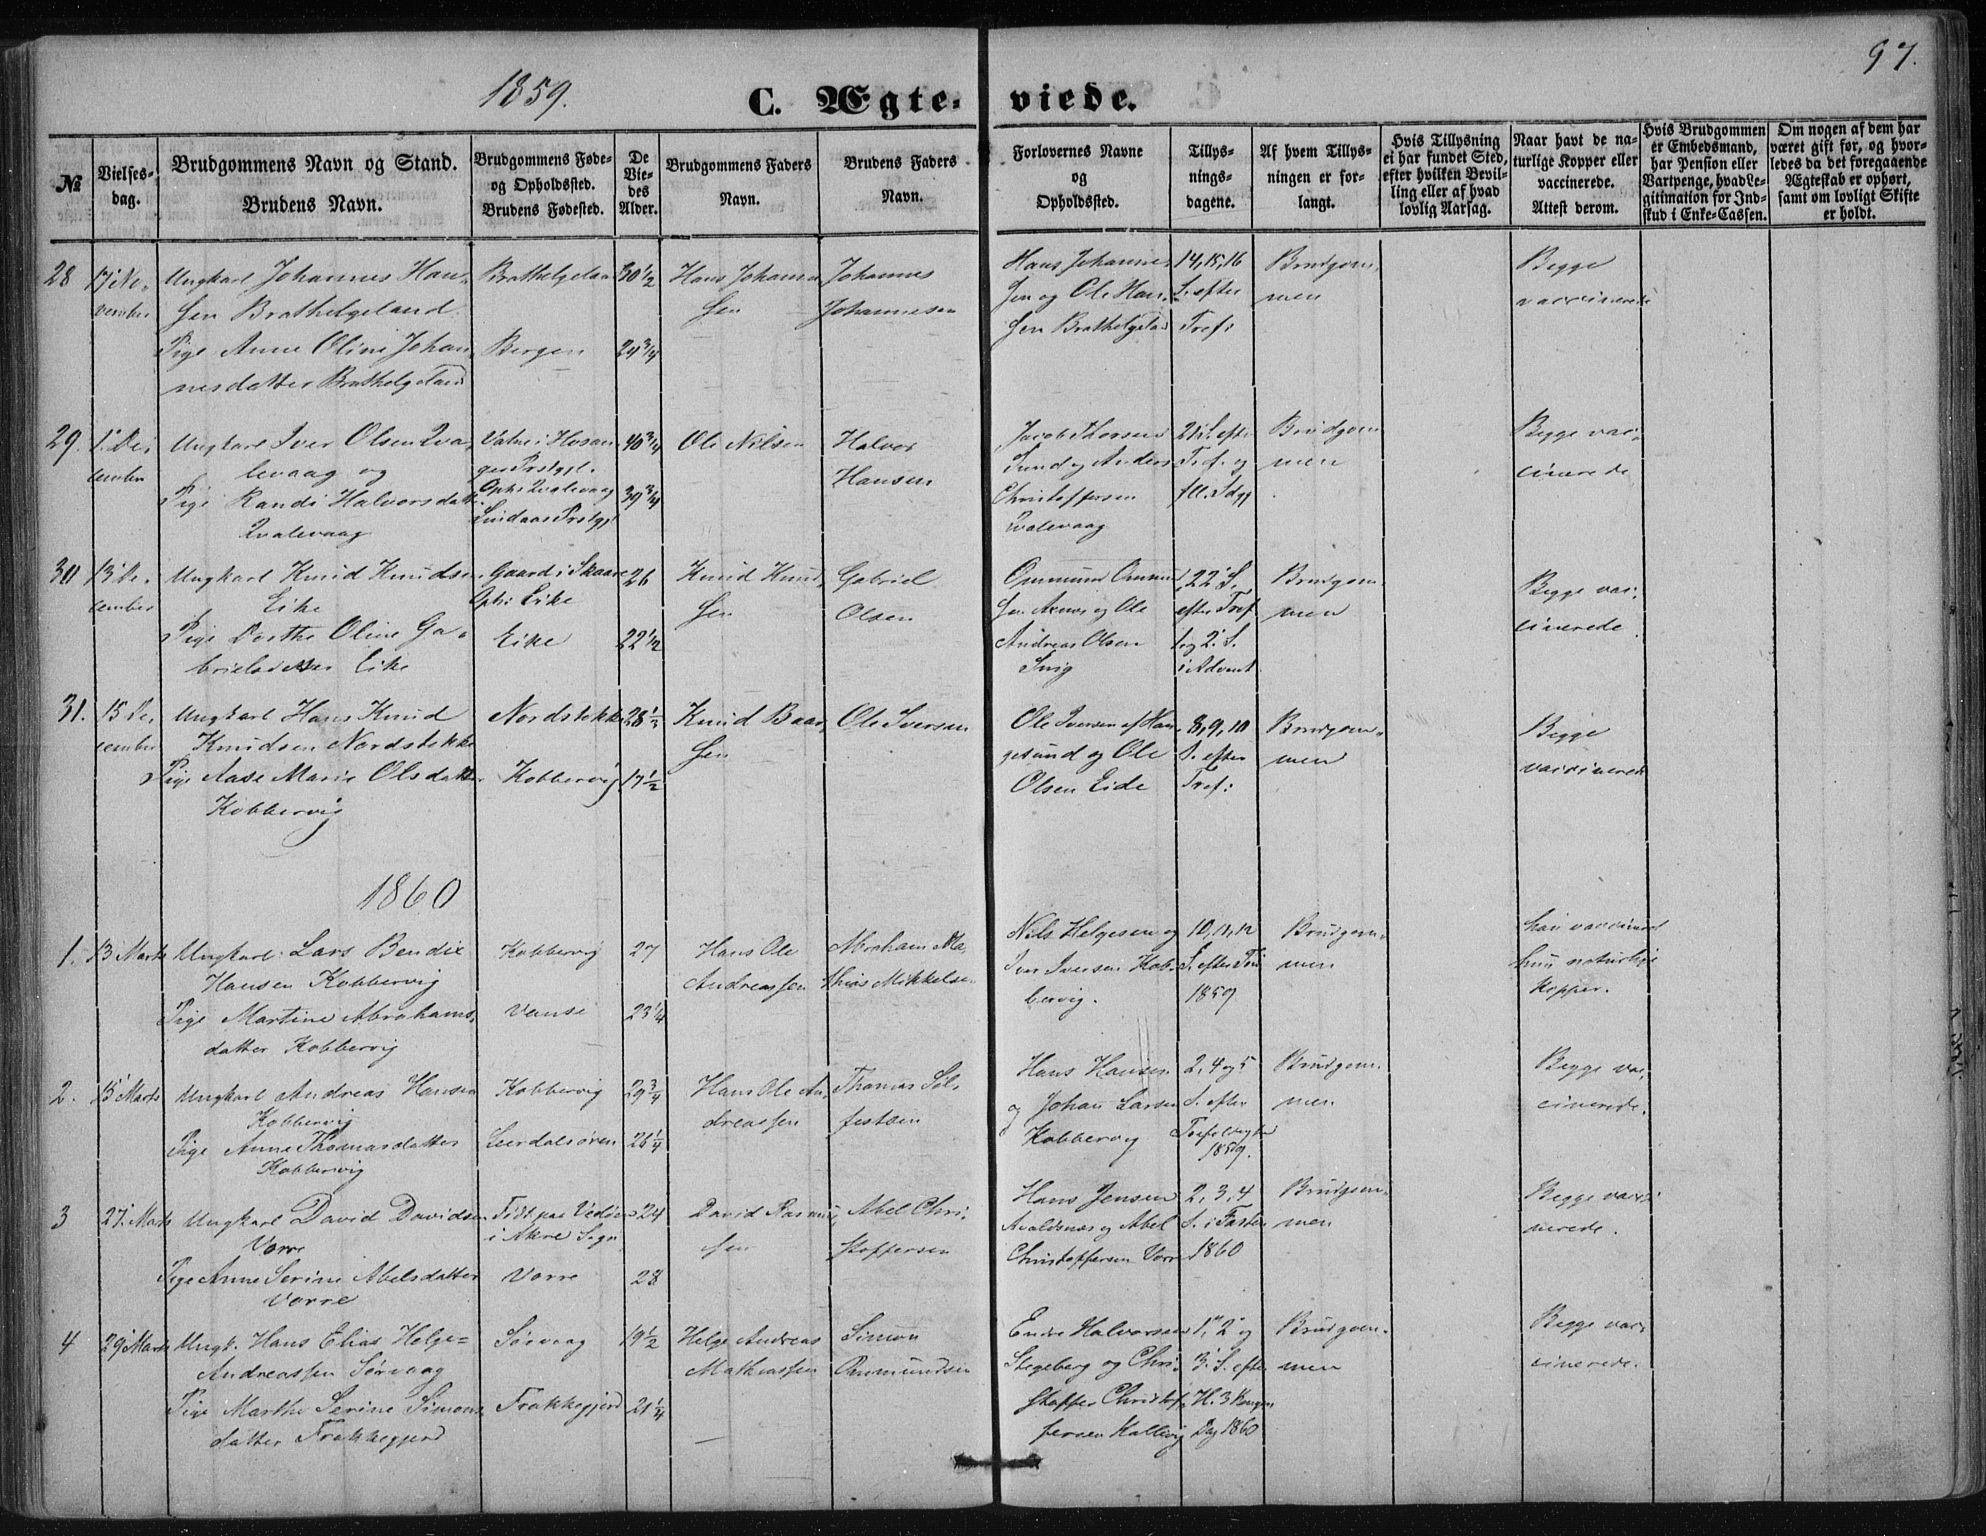 97.
1859.
C. Ægte- viede.
№
Vielses-
dag.
Brudgommens Navn og Stand.
Brudens Navn.
Brudgommens Føde-
og Opholdssted.
Brudens Fødested.
De
Vie-
des
Alder.
Brudgommens Faders
Navn.
Brudens Faders
Navn.
Forlovernes Navne
og
Opholdssted.
Tillys-
nings-
dagene.
Af hvem Tillys-
ningen er for-
langt.
Hvis Tillysning
ei har fundet Sted,
efter hvilken Bevil-
ling eller af hvad
lovlig Aarsag.
Naar havt de na-
turlige Kopper eller
vaccinerede.
Attest derom.
Hvis Brudgommen
er Embedsmand,
har Pension eller
Vartpenge, hvad Le-
gitimation for Ind-
skud i Enke-Cassen.
Om nogen af dem har
været gift før, og hvor-
ledes da det foregaaende
Ægteskab er ophørt,
samt om lovligt Skifte
er holdt.
28
17 No-
vember
Ungkarl Johannes Han-
sen Brathelgeland
Pige Anne Oline Johan-
nesdatter Brathelgeland
Brathelgeland
Bergen
30 1/2
24 3/4
Hans Johanne
sen
Johannes
Johannesen
Hans Johanne-
sen og Ole Han-
sen Brathelgeland
14, 15, 16
S. efter
Tref:
Brudgom-
men
Begge
vaccinerede
29.
1 De-
cember
Ungkarl Iver Olsen Qva-
levaag og
Pige Randi Halvorsdatt.
Qvalevaag
Vatne i Hosan-
ger Prstgjl.
Oph: Qvalevaag
Lindaas Prstgjl
40 3/4
39 3/4
Ole Nilsen
Halvor
Hansen
Jacob Thorsen
Sund og Anders
Christoffersen
Qvalevaag
21 S. efter
Tref. og
fll. Sdgg
Brudgom
men
Begge vac-
cinerede
30
13 De-
cember
Ungkarl Knud Knudsen
Eike
Pige Dorthe Oline Ga-
brielsdatter Eike
Gaard i Skaare
Oph: Eike
Eike
26
22 1/2
Knud Knud-
sen
Gabriel
Olsen
Ommund Ommund
sen Axnes og Ole
Andreas Olsen
Snig
22 S.
efter Tref.
og 2. S.
i Advent
Brudgom-
men
Begge vac-
cinerede
31.
15 De-
cember
Ungkarl Hans Knud
Knudsen Nordstokke
Pige Aase Marie Olsdatter
Kobbervig
Nordstokke
Kobbervig
28 1/2
17 1/2
Knud Baar-
sen
Ole Iversen
Ole Iversen af Hau-
gesund og Ole
Olsen Eide
8, 9, 10
S. efter
Tref:
Brudgom-
men
Begge
vaccinerede
1860
1.
13 Marts
Ungkarl Lars Bendix
Hansen Kobbervig
Pige Martine Abrahams-
datter Kobbervig
Kobbervig
Vanse
27
23 1/4
Hans Ole
Andreassen
Abraham Ma-
thias Mikkelsen
Nils Helgesen og
Iver Iversen Kob-
bervig.
10, 11, 12
S. efter Tref
1859
Brudgom-
men
han vaccineret
hun naturlige
Kopper.
2.
15 Marts
Ungkarl Andreas Hansen
Kobbervig
Pige Anne Thomasdatter
Kobbervig
Kobbervig
Leerdalsøren
29 3/4
26 1/4
Hans Ole An-
dreassen
Thomas Sel-
festsen
Hans Hansen
og Johan Larsen
Kobbervig
2, 4 og 5
S. efter
1859.
Brudgom-
men
Begge vac-
cinerede.
3
27 Marts
Ungkarl David Davidsen
Vorre
Pige Anne Serine Abelsdatter
Vorre
Født paa Vedøen
i Akre Sogn
Vorre
24
28
David Rasmus-
sen
Abel Chri-
stoffersen
Hans Jensen
Avaldsnæs og Abel
Christoffersen Vorre
2, 3, 4
S. i Fasten
1860
Brudgom-
men
Begge vacci-
nerede.
4
29 Marts
Ungk. Hans Elias Helge-
Andreassen Sørvaag
Pige Marthe Serine Simons-
datter Frakkegjerd
Sørvaag
Frakkegjerd
19 1/2
21 1/4
Helge Andreas
Mathiassen
Simon
Ommundsen
Endre Halvorsen
Stegeberg og Chri-
stoffer Christof-
fersen Kallevig
1, 2 og
3. S. efter
H. 3 Kongers
Dag 1860
Brudgom-
men
Begge vac-
cinerede.